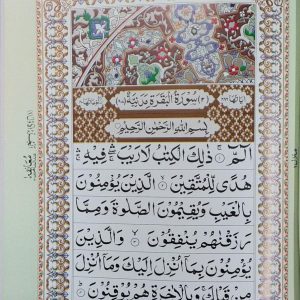 (٢) سُوْرَةُ الْبَقَرَةِ مَدَنِيَّةٌ
بِسْمِ اللّٰهِ الرَّحْمٰنِ الرَّحِيْمِ
الٓمّٓ ۚ ذٰلِكَ الْكِتٰبُ لَا رَيْبَ ۛ فِيْهِ ۛ
هُدًى لِّلْمُتَّقِيْنَ ۙ الَّذِيْنَ يُؤْمِنُوْنَ
بِالْغَيْبِ وَيُقِيْمُوْنَ الصَّلٰوةَ وَمِمَّا
رَزَقْنٰهُمْ يُنْفِقُوْنَ ۙ وَالَّذِيْنَ
يُؤْمِنُوْنَ بِمَآ اُنْزِلَ اِلَيْكَ وَمَآ اُنْزِلَ
مِنْ قَبْلِكَ ۚ وَبِالْاٰخِرَةِ هُمْ يُوْقِنُوْنَ